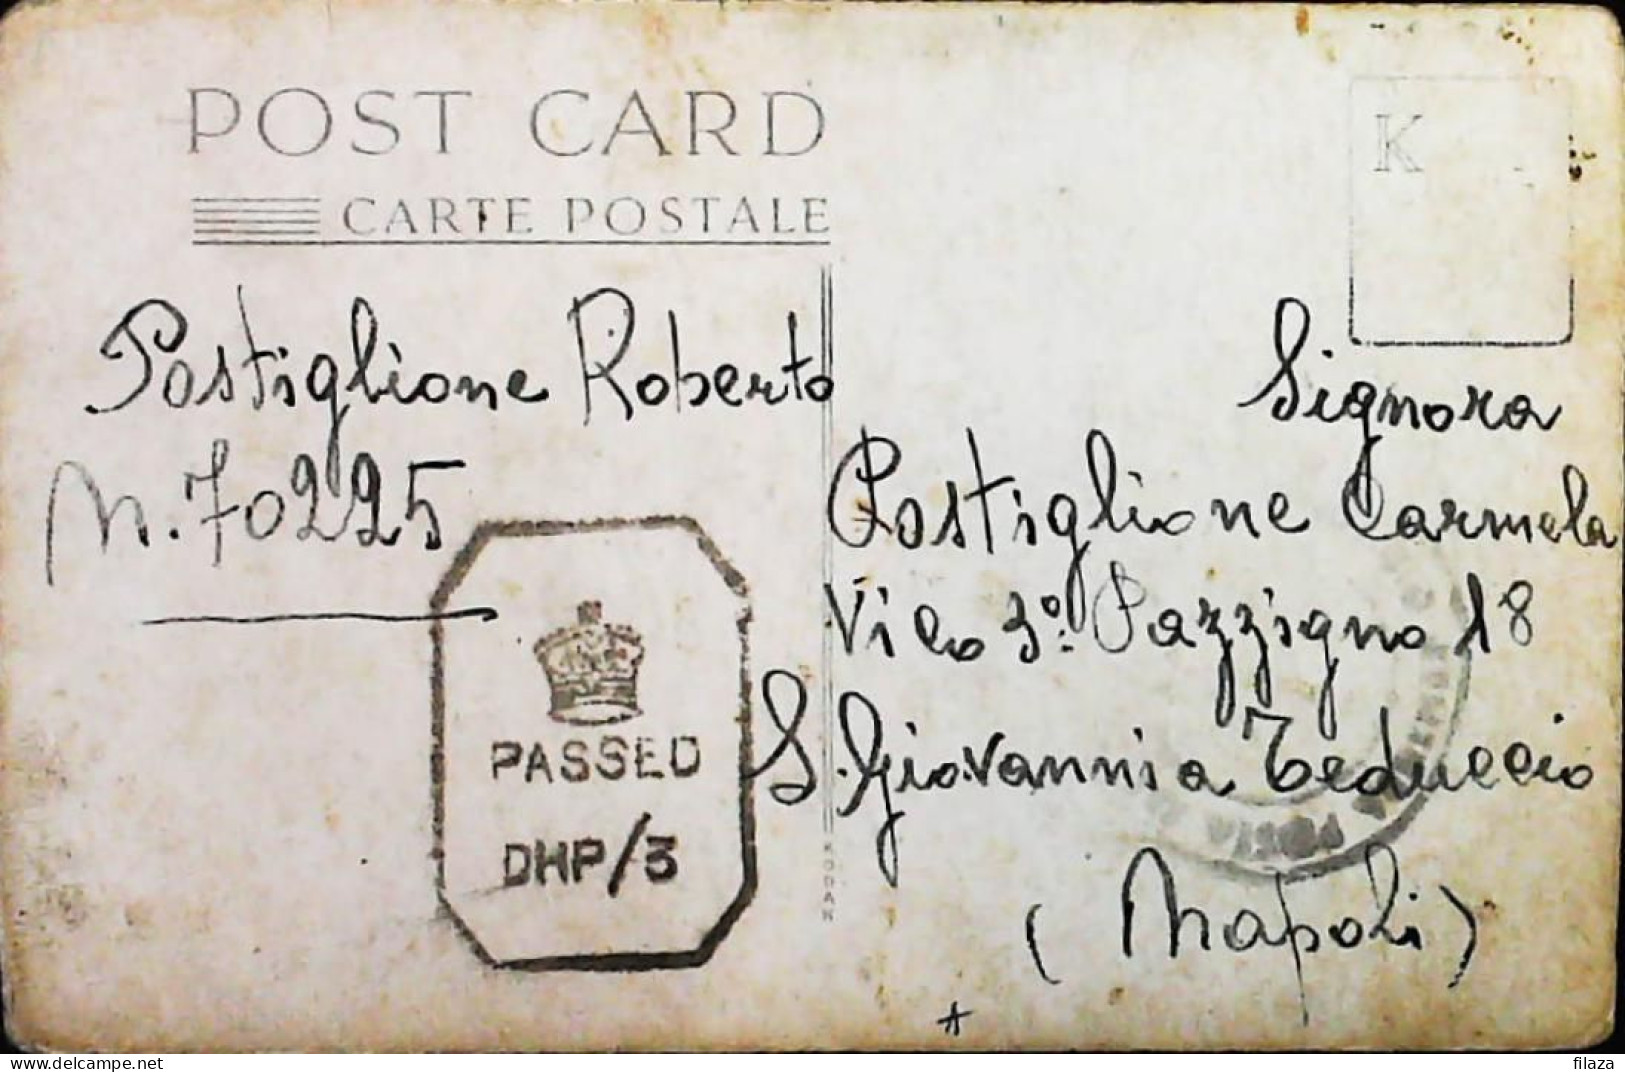 POST CARD
CARTE POSTALE
K
Postiglione Roberto
N. 70225
PASSED
DHP/3
Signora
Postiglione Carmela
Vico 3º Pazzigno 18
S. Giovanni a Teduccio
(Napoli)
KODAK
POSTA
filaza